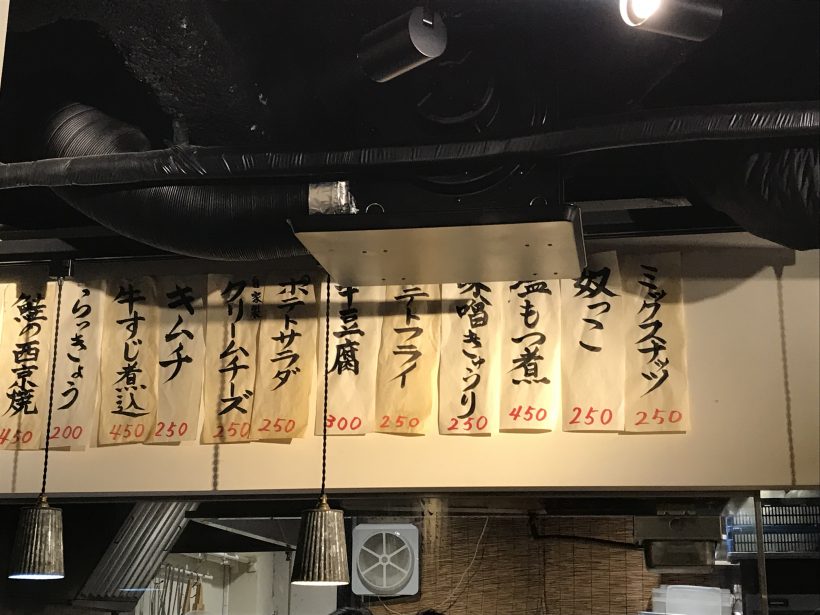 ミックスナッツ
250
奴っこ
250
塩もつ煮
450
味噌きゅうり
250
テトフライ
250
豆腐
300
ポテトサラダ
250
自家製
クリームチーズ
250
キムチ
250
牛すじ煮込
450
らっきょう
200
鮭の西京焼
450